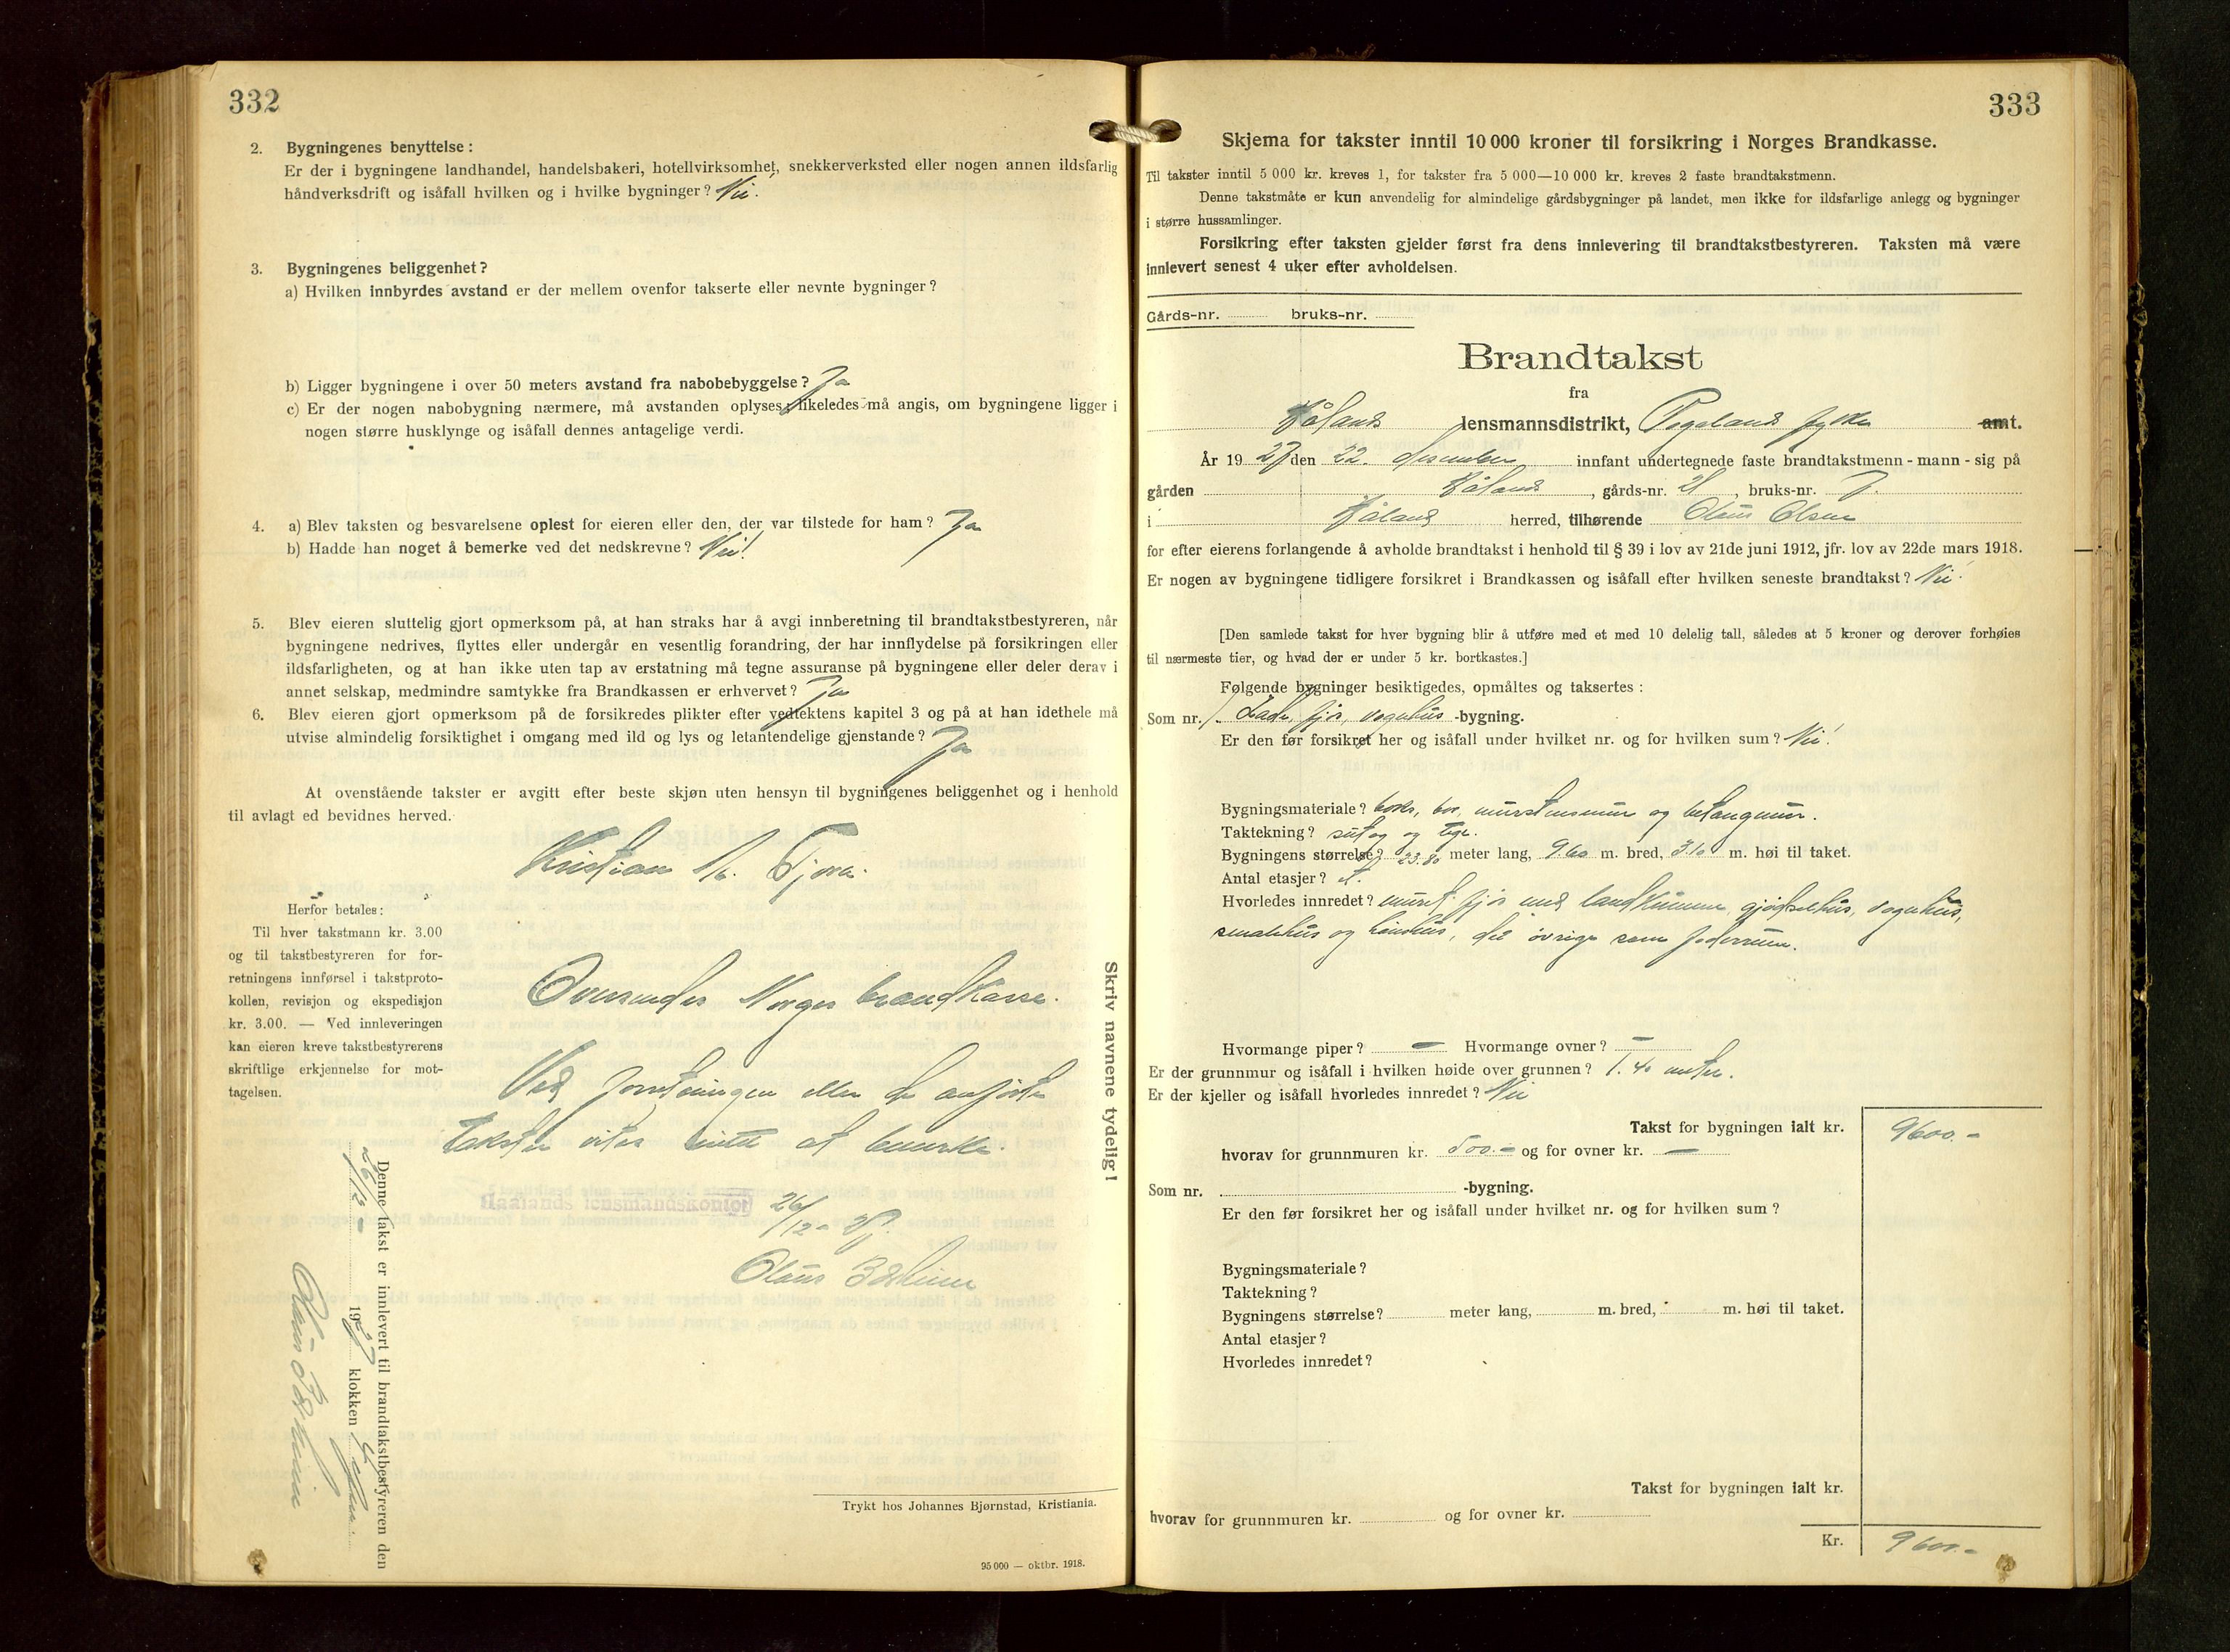 332
2. Bygningenes benyttelse:
Er der i bygningene landhandel, handelsbakeri, hotellvirksomhet, snekkerverksted eller nogen annen ildsfarlig
håndverksdrift og isåfall hvilken og i hvilke bygninger? Nei!
3. Bygningenes beliggenhet?
a) Hvilken innbyrdes avstand er der mellem ovenfor takserte eller nevnte bygninger?
b) Ligger bygningene i over 50 meters avstand fra nabobebyggelse? Ja
c) Er der nogen nabobygning nærmere, må avstanden oplyses, likeledes må angis, om bygningene ligger i
nogen større husklynge og isåfall dennes antagelige verdi.
4. a) Blev taksten og besvarelsene oplest for eieren eller den, der var tilstede for ham? Ja
b) Hadde han noget å bemerke ved det nedskrevne? Nei!
5. Blev eieren sluttelig gjort opmerksom på, at han straks har å avgi innberetning til brandtakstbestyreren, når
bygningene nedrives, flyttes eller undergår en vesentlig forandring, der har innflydelse på forsikringen eller
ildsfarligheten, og at han ikke uten tap av erstatning må tegne assuranse på bygningene eller deler derav i
annet selskap, medmindre samtykke fra Brandkassen er erhvervet? Ja
6. Blev eieren gjort opmerksom på de forsikredes plikter efter vedtektens kapitel 3 og på at han idethele må
utvise almindelig forsiktighet i omgang med ild og lys og letantendelige gjenstande? Ja
At ovenstående takster er avgitt efter beste skjøn uten hensyn til bygningenes beliggenhet og i henhold
til avlagt ed bevidnes herved.
Kristian Tjora.
Herfor betales:
Til hver takstmann kr. 3.00
og til takstbestyreren for for-
retningens innførsel i takstproto-
kollen, revisjon og ekspedisjon
kr. 3.00. — Ved innleveringen
kan eieren kreve takstbestyrerens
skriftlige erkjennelse for mot-
tagelsen.
Oversendes Norges brandkasse.
Ved forretningen eller de anførte
takster vites intet at bemerke.
Haalands lensmandskontor 26/12-27.
Olaus
Skriv navnene tydelig!
Denne takst er innlevert til brandtakstbestyreren den
26/12- 1927 klokken 4
Olaus
Trykt hos Johannes Bjørnstad, Kristiania.
95 000 — oktbr. 1918.
333
Skjema for takster inntil 10 000 kroner til forsikring i Norges Brandkasse.
Til takster inntil 5 000 kr. kreves 1, for takster fra 5 000—10 000 kr. kreves 2 faste brandtakstmenn.
Denne takstmåte er kun anvendelig for almindelige gårdsbygninger på landet, men ikke for ildsfarlige anlegg og bygninger
i større hussamlinger.
Forsikring efter taksten gjelder først fra dens innlevering til brandtakstbestyreren. Taksten må være
innlevert senest 4 uker efter avholdelsen.
Gårds-nr. bruks-nr.
Brandtakst
fra
Håland lensmannsdistrikt, Rogaland fylke amt.
År 1927 den 22. desember innfant undertegnede faste brandtakstmenn - mann - sig på
gården Håland, gårds-nr. 21, bruks-nr. 7.
i Håland herred, tilhørende Olaus Olsen
for efter eierens forlangende å avholde brandtakst i henhold til § 39 i lov av 21de juni 1912, jfr. lov av 22de mars 1918.
Er nogen av bygningene tidligere forsikret i Brandkassen og isåfall efter hvilken seneste brandtakst? Nei.
[Den samlede takst for hver bygning blir å utføre med et med 10 delelig tall, således at 5 kroner og derover forhøies
til nærmeste tier, og hvad der er under 5 kr. bortkastes.]
Følgende bygninger besiktigedes, opmåltes og taksertes:
Som nr. 1. Lade, fjøs, vognhus -bygning.
Er den før forsikret her og isåfall under hvilket nr. og for hvilken sum? Nei!
Bygningsmateriale? murstensmur og betongmur.
Taktekning? sutag og tegl.
Bygningens størrelse? 23.80 meter lang, 9.60 m. bred, 3.10 m. høi til taket.
Antal etasjer? et.
Hvorledes innredet? fjøs med landkummer, gjødselhus, vognhus,
smalehus og hønshus, det øvrige som foderrum.
Hvormange piper? — Hvormange ovner? —
Er der grunnmur og isåfall i hvilken høide over grunnen? 1.40 meter.
Er der kjeller og isåfall hvorledes innredet? Nei
Takst for bygningen ialt kr. 9600.-
hvorav for grunnmuren kr. 500.- og for ovner kr. —
Som nr. -bygning.
Er den før forsikret her og isåfall under hvilket nr. og for hvilken sum?
Bygningsmateriale?
Taktekning?
Bygningens størrelse? meter lang, m. bred, m. høi til taket.
Antal etasjer?
Hvorledes innredet?
Takst for bygningen ialt kr.
hvorav for grunnmuren kr. og for ovner kr.
Kr. 9600.-